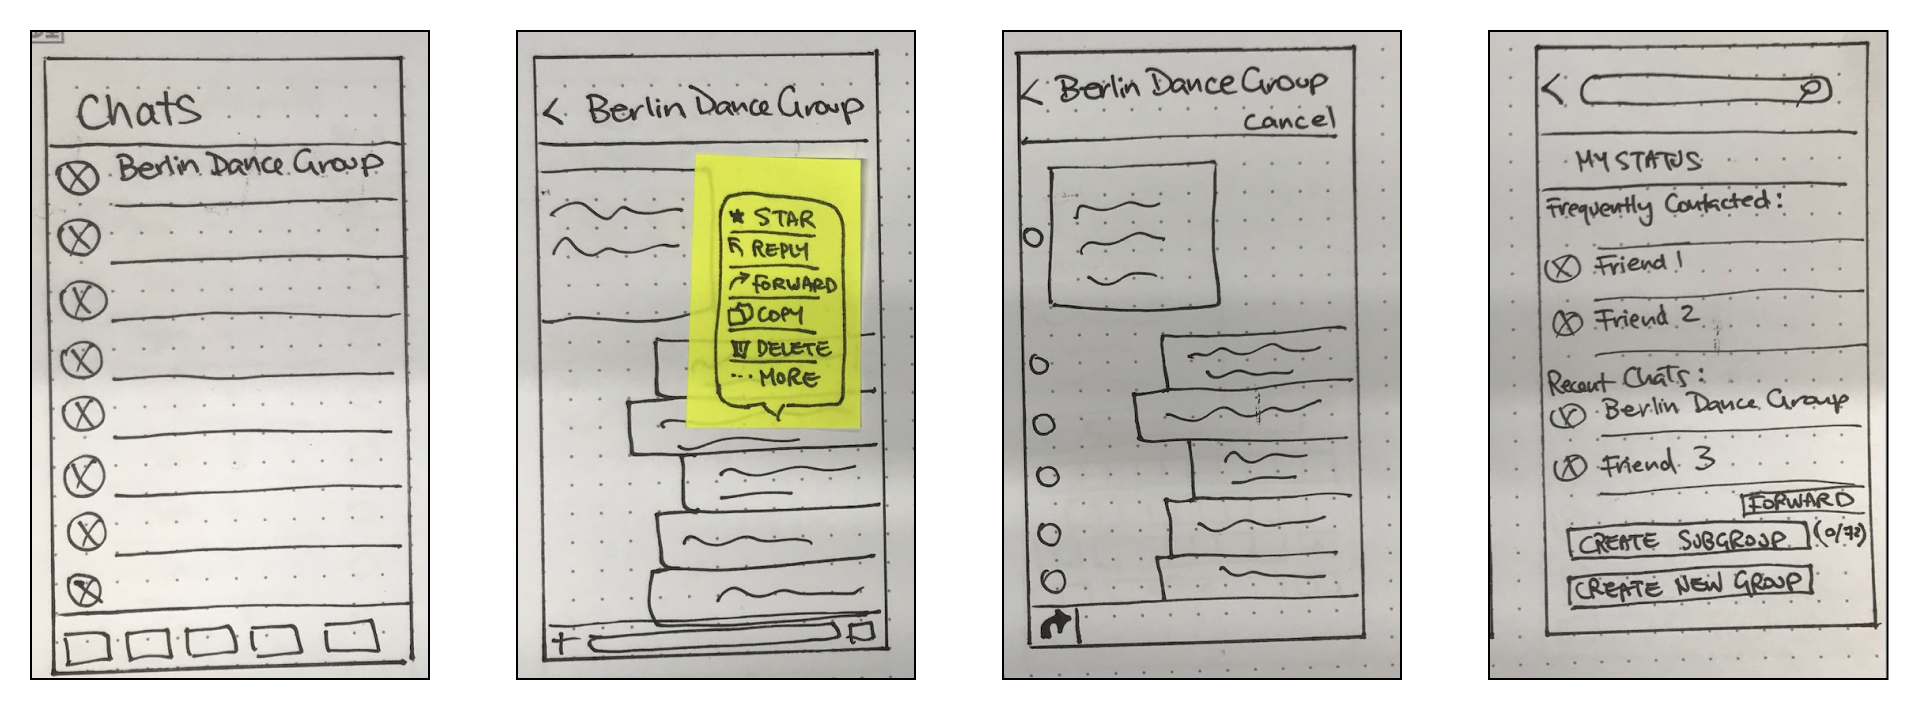 Chats
Berlin Dance Group
< Berlin Dance Group
STAR
REPLY
FORWARD
COPY
DELETE
... MORE
< Berlin Dance Group
cancel
<
MY STATUS
Frequently Contacted:
Friend 1
Friend 2
Recent Chats:
Berlin Dance Group
Friend 3
FORWARD
CREATE SUBGROUP (0/72)
CREATE NEW GROUP